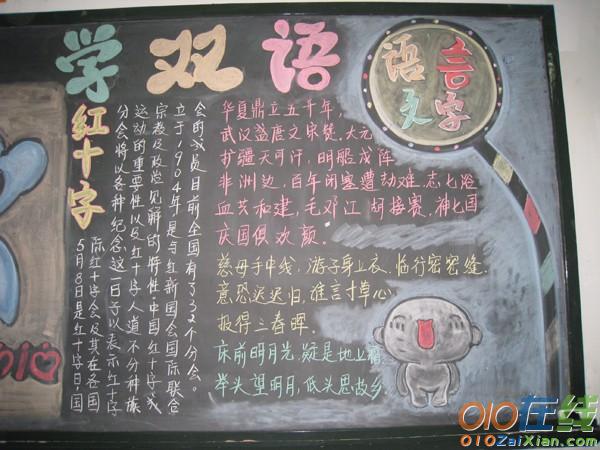 学双语
语言文字
红十字
5月8日是红十字日,国
际红十字会及其在各国
分会将以各种纪念这一日子以表示红十字
运动的重要性以及红十字人道不分种族
宗教及政治见解的特性.中国红十字成
立于1904年是与红新国会国际联合
会的成员目前全国有了22个分会。
华夏鼎立五千年,
武汉盛唐文宋赞.大元
扩疆天可汗,明船戎阵
非洲边,百年闭塞遭劫难.志七浴
血共和建,毛邓江胡接赛,神七国
庆国俱欢颜.
慈母手中线,游子身上衣.临行密密缝.
意恐迟迟归,谁言寸草心.
报得三春晖.
床前明月光,疑是地上霜.
举头望明月,低头思故乡.
010在线
010ZaiXian.com